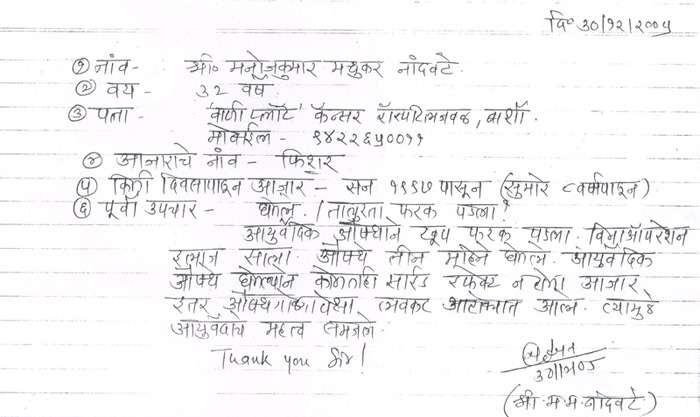 दि० ३०/१२/२००५
① नांव - श्री० मनोजकुमार मधुकर नांदवटे.
② वय - ३२ वर्ष
③ पत्ता - 'वाणी प्लॉट' कॅन्सर हॉस्पिटलजवळ, बार्शी.
मोबाईल - ९४२२६५००११
४ आजाराचे नांव - फिशर
५ किती दिवसापासून आजार - सन १९९७ पासून (सुमारे ८ वर्षापासून)
⑥ पूर्वी उपचार - घेतले. / तात्पुरता फरक पडला?
आयुर्वेदिक औषधाने खूप फरक पडला. विनाऑपरेशन
इलाज झाला. औषधे तीन महिने घेतले. आयुर्वेदिक
औषध घेतल्याने कोणताही साईड इफेक्ट न होता आजार
इतर औषधगोळ्यापेक्षा लवकर आटोक्यात आले. त्यामुळे
आयुर्वेदाचे महत्व समजले.
Thank you Sir!
(श्री. म. म. नांदवटे)